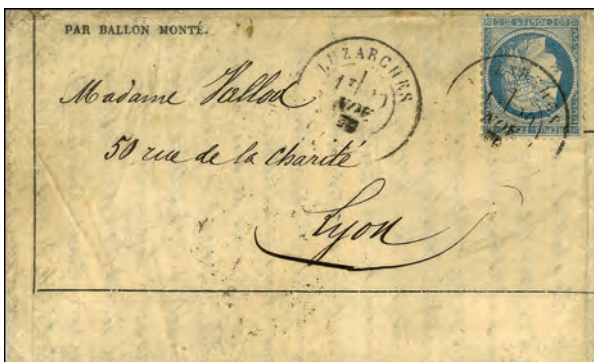 PAR BALLON MONTÉ.
LUZARCHES
NOV
Madame Vallod
50 rue de la charité
Lyon